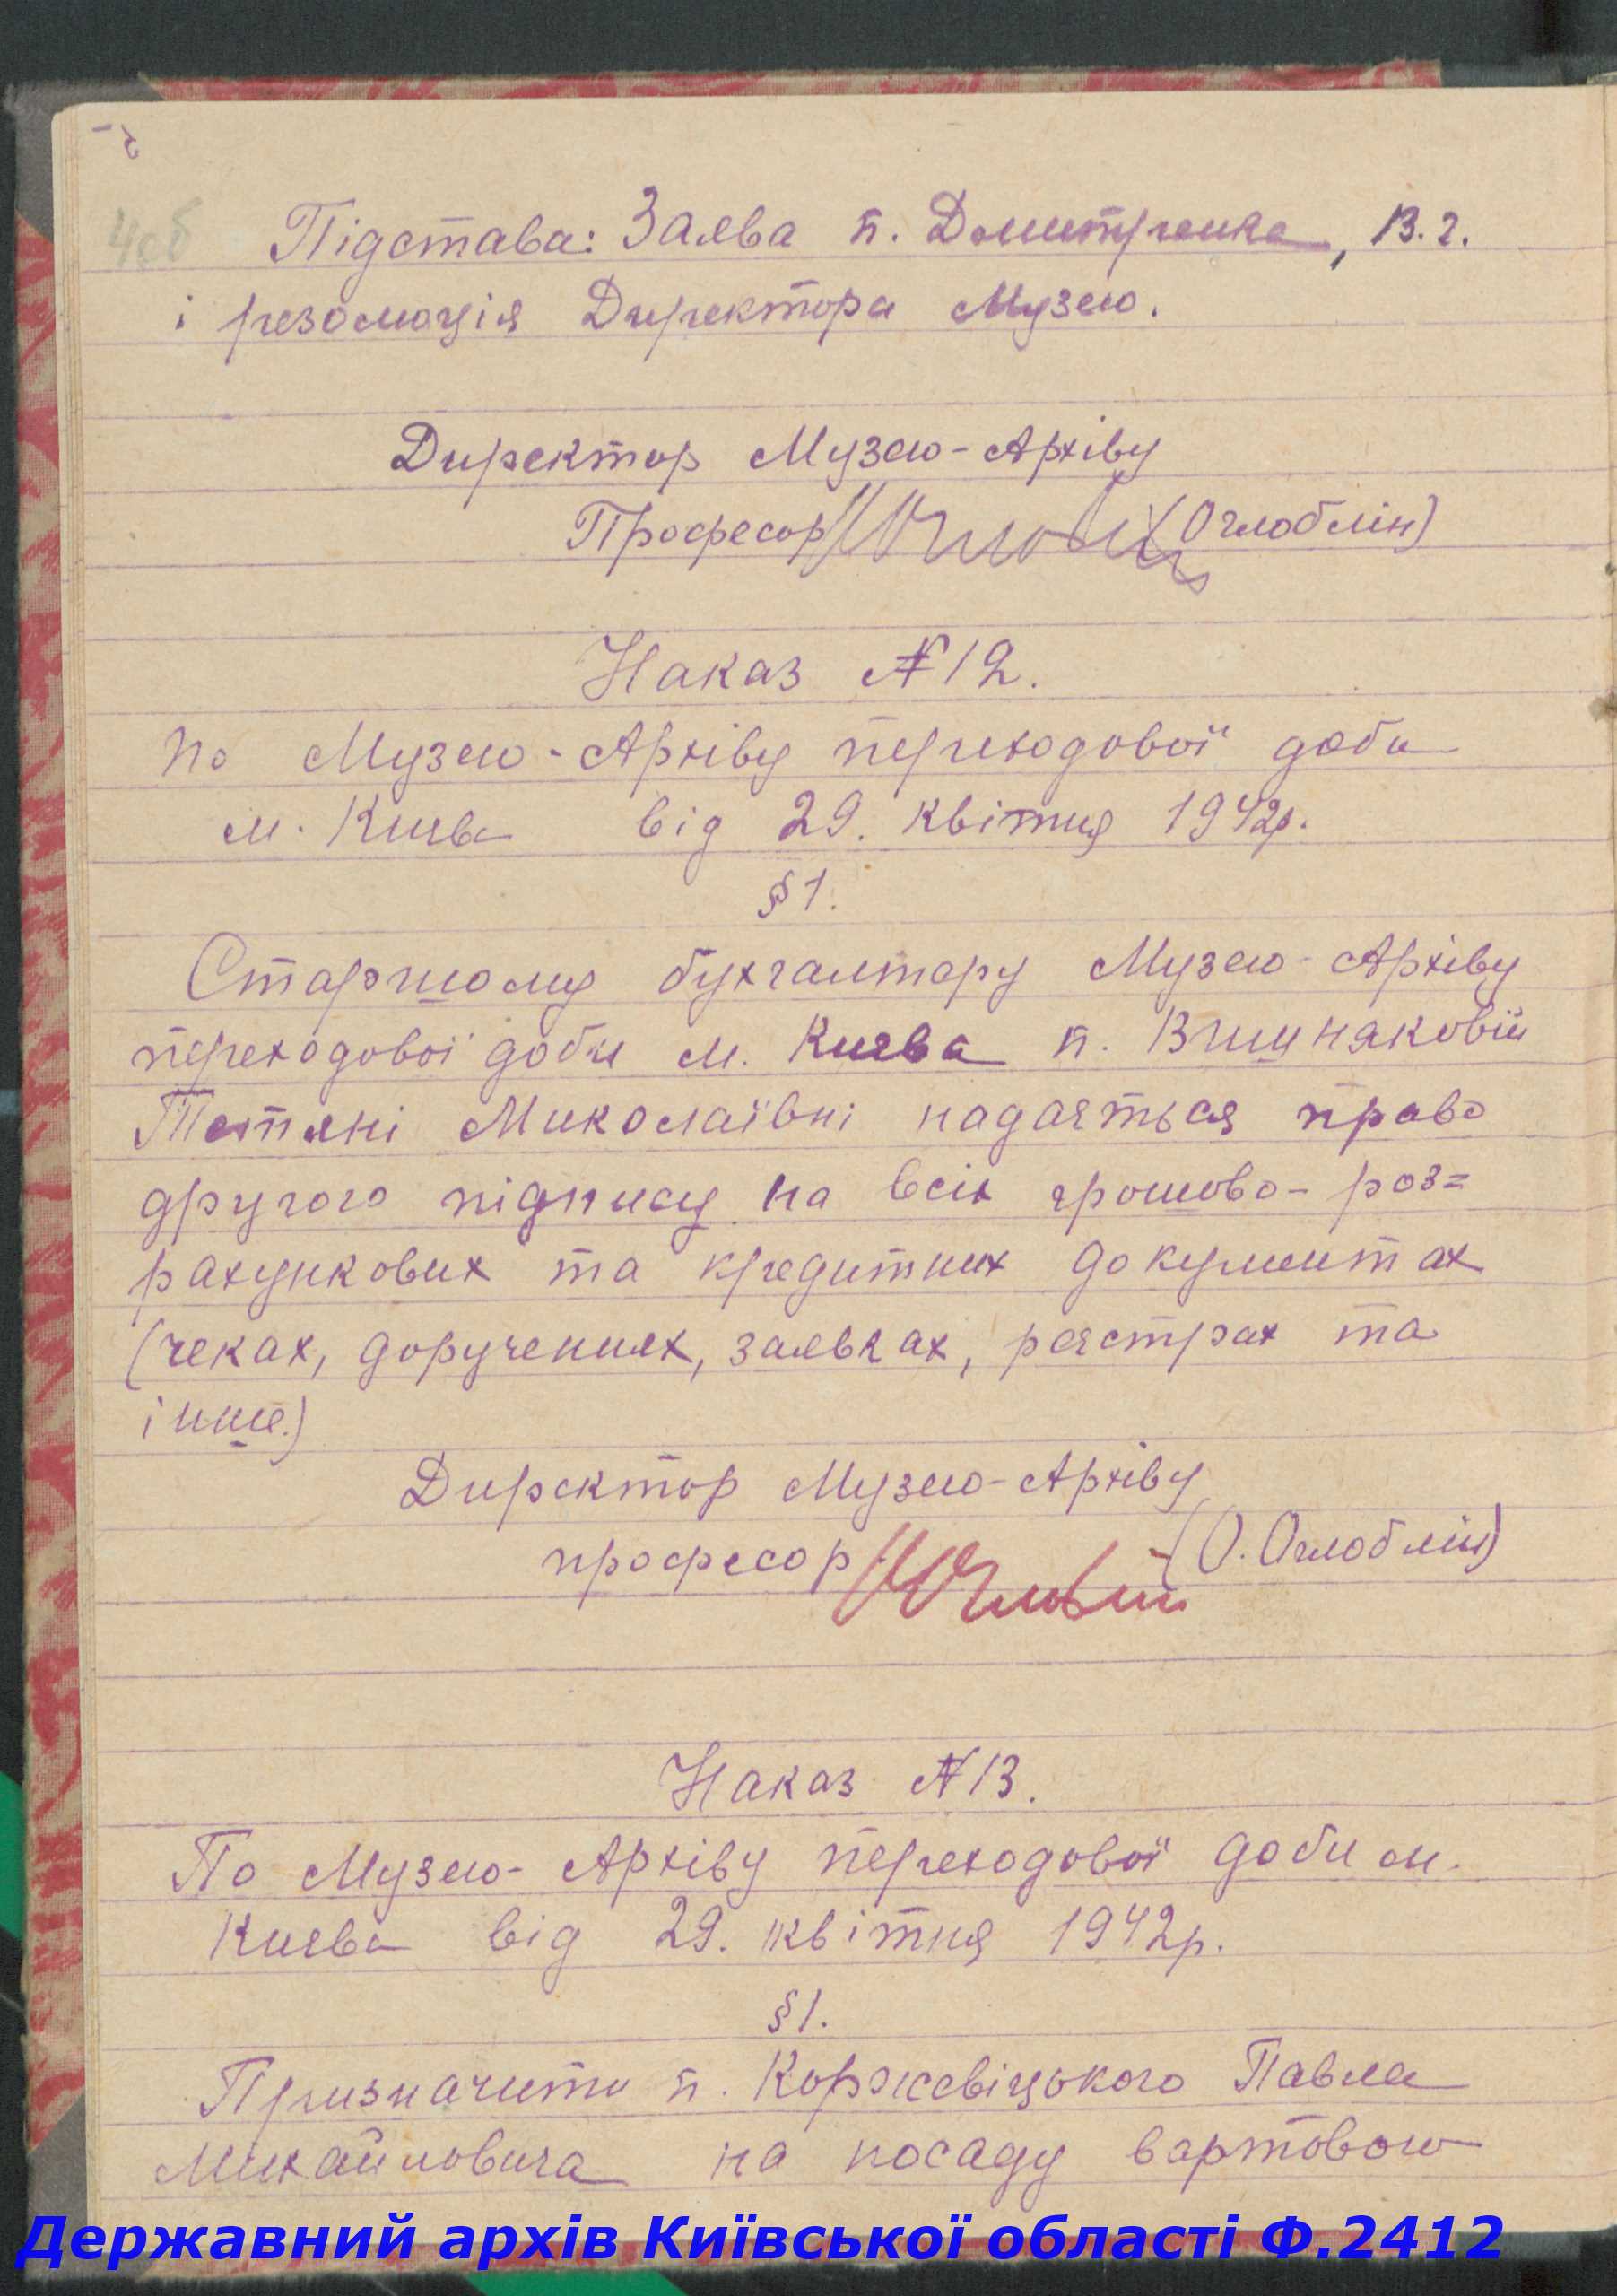 4об
Підстава: Заява п. Домитренка, В.г.
і резолюція Директора Музею.
Директор Музею-Архіву
Професор (Оглоблін)
Наказ № 12.
по Музею-Архіву переходової доби
м. Києва від 29. квітня 1942р.
§ 1.
Старшому бухгалтеру Музею-Архіву
переходової доби м. Києва п. Вишняковій
Тетяні Миколаївні надається право
другого підпису на всіх грошово-роз=
рахункових та кредитних документах
(чеках, дорученнях, заявках, реєстрах та
інше.)
Директор Музею-Архіву
професор (О. Оглоблін)
Наказ № 13.
По Музею-Архіву переходової доби м.
Києва від 29. квітня 1942р.
§ 1.
Призначити п. Коржевіцького Павла
Михайловича на посаду вартового
Державний архів Київської області Ф.2412